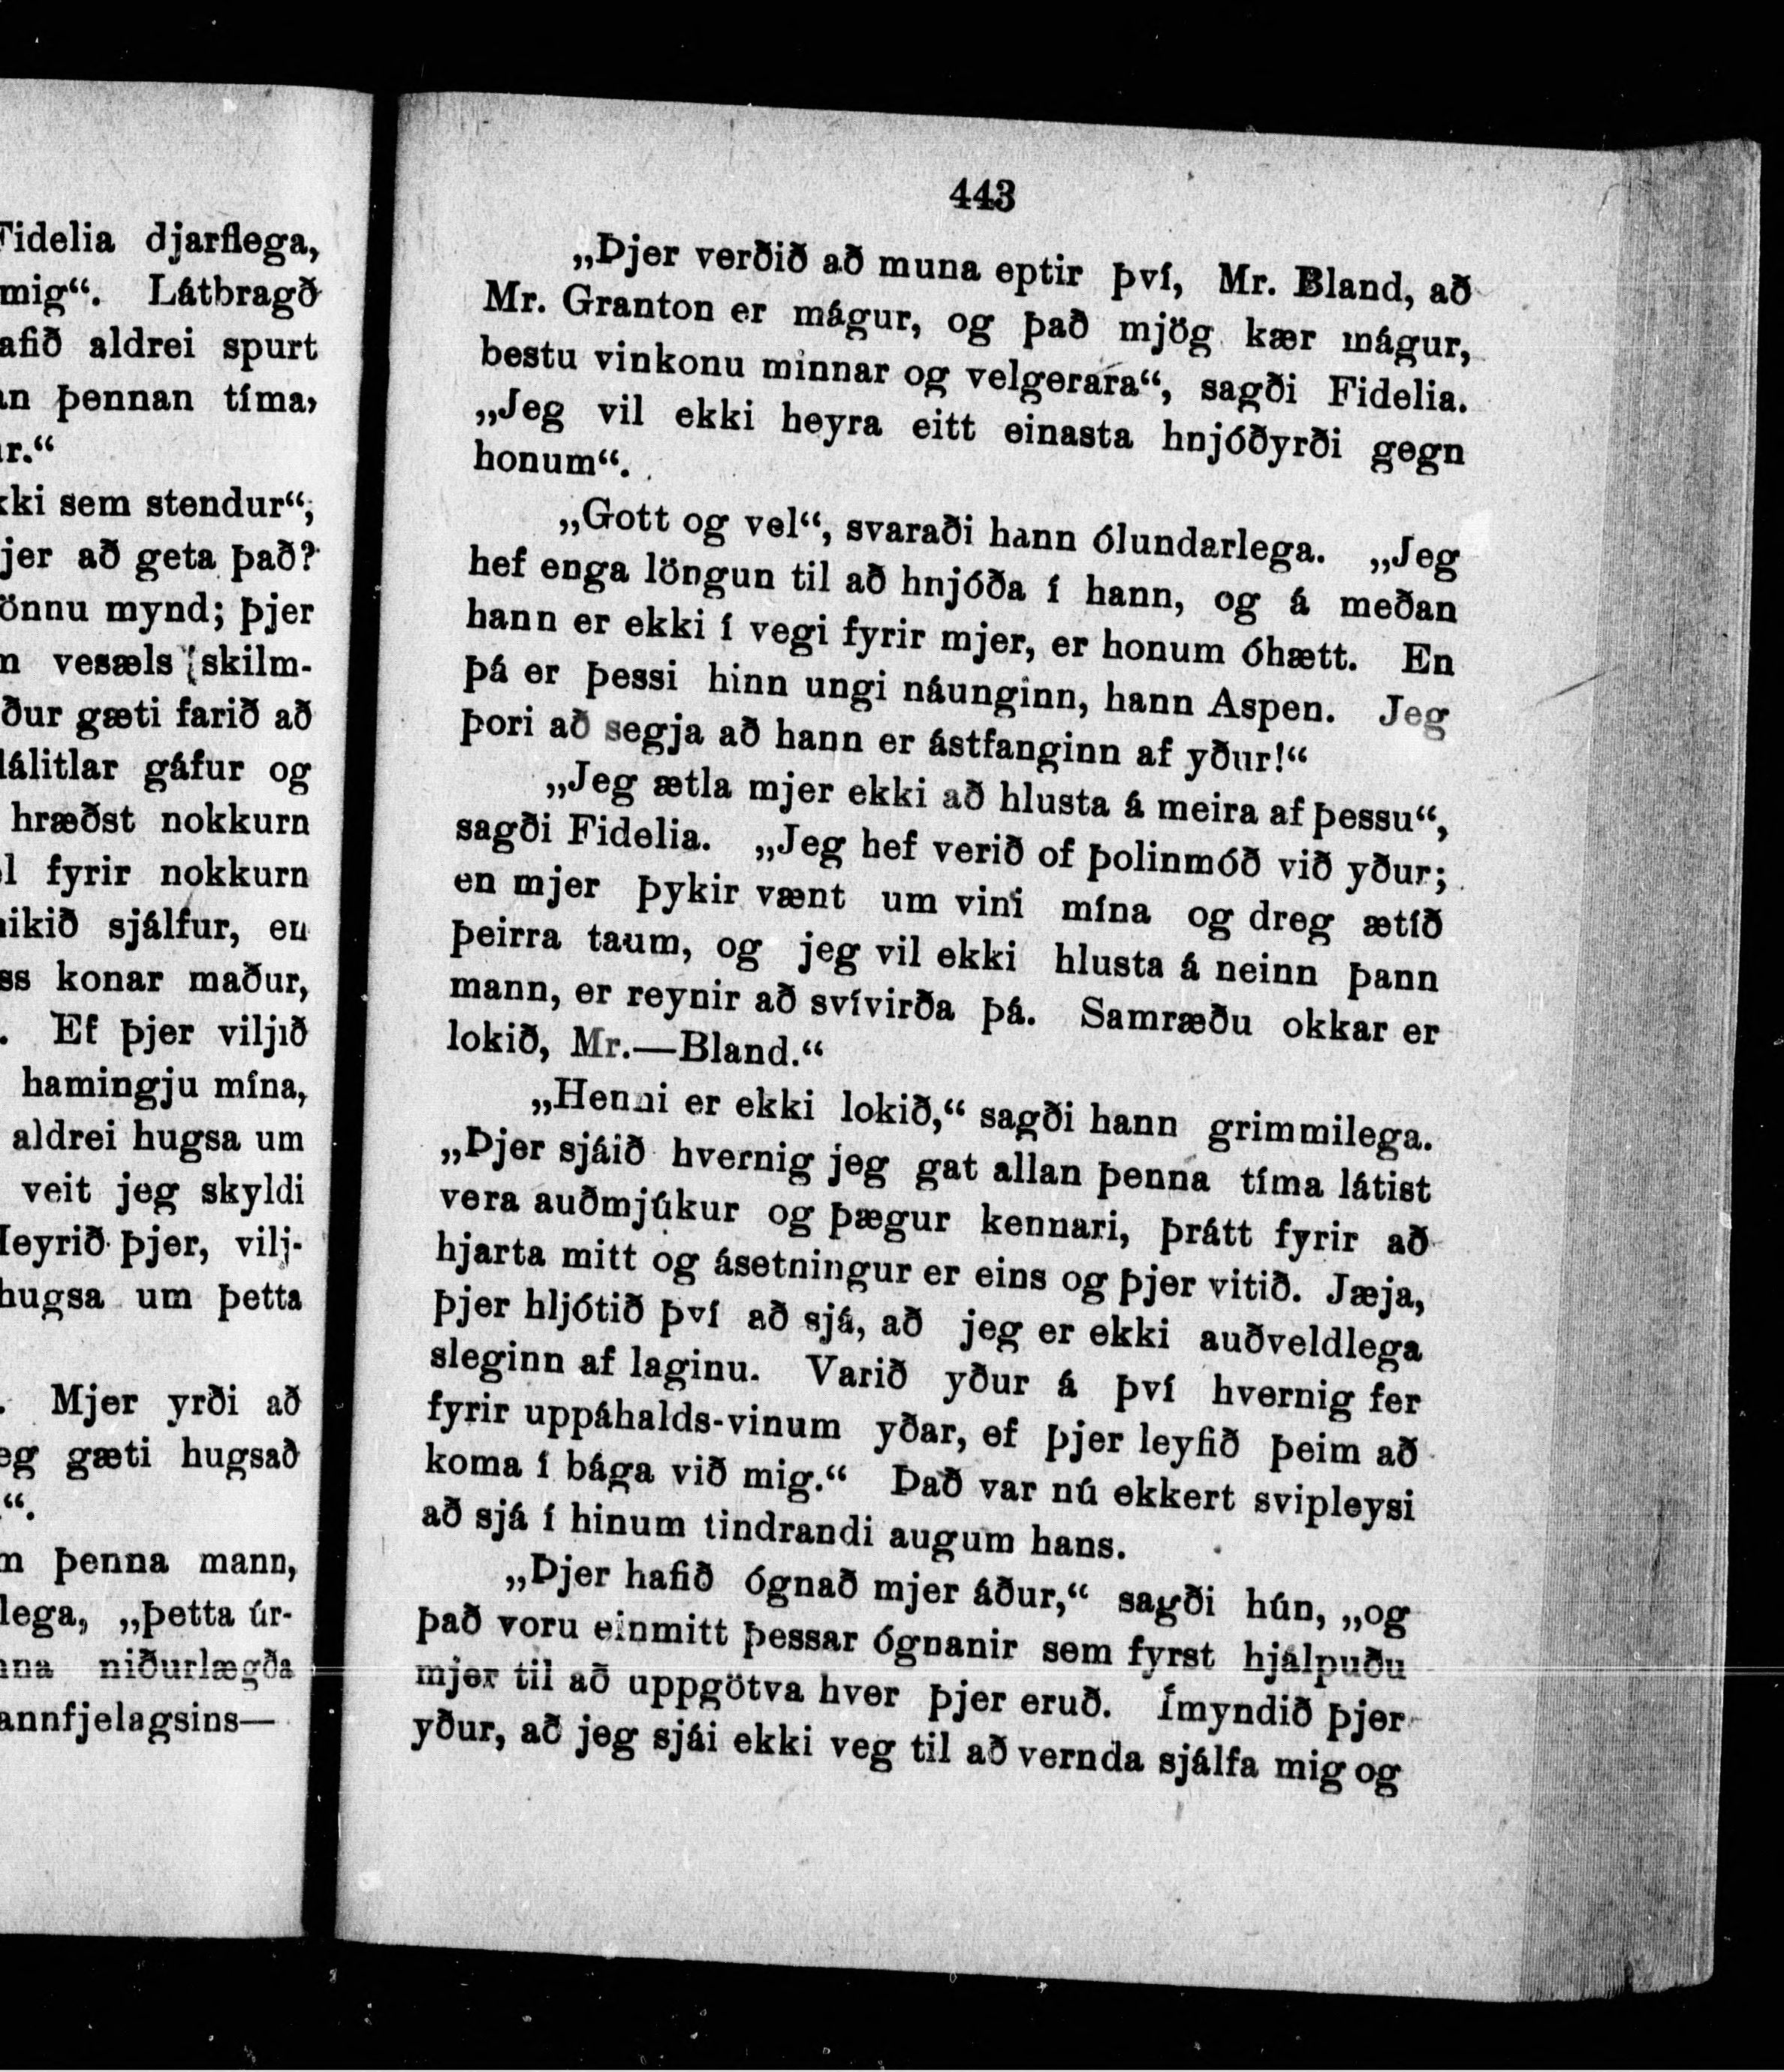 Fidelia djarflega,
mig“. Látbragð
afið aldrei spurt
þennan tíma,
r.“
kki sem stendur“,
jer að geta það?
önnu mynd; þjer
vesæls skilm-
ður gæti farið að
álitlar gáfur og
hræðst nokkurn
fyrir nokkurn
ikið sjálfur, en
ss konar maður,
. Ef þjer viljið
hamingju mína,
aldrei hugsa um
veit jeg skyldi
Heyrið þjer, vilj-
hugsa um þetta
. Mjer yrði að
eg gæti hugsað
“.
þenna mann,
lega, „þetta úr-
na niðurlægða
annfjelagsins—
443
„Þjer verðið að muna eptir því, Mr. Bland, að
Mr. Granton er mágur, og það mjög kær mágur,
bestu vinkonu minnar og velgerara“, sagði Fidelia.
„Jeg vil ekki heyra eitt einasta hnjóðyrði gegn
honum“.
„Gott og vel“, svaraði hann ólundarlega. „Jeg
hef enga löngun til að hnjóða í hann, og á meðan
hann er ekki í vegi fyrir mjer, er honum óhætt. En
þá er þessi hinn ungi náunginn, hann Aspen. Jeg
þori að segja að hann er ástfanginn af yður!“
„Jeg ætla mjer ekki að hlusta á meira af þessu“,
sagði Fidelia. „Jeg hef verið of þolinmóð við yður;
en mjer þykir vænt um vini mína og dreg ætíð
þeirra taum, og jeg vil ekki hlusta á neinn þann
mann, er reynir að svívirða þá. Samræðu okkar er
lokið, Mr.—Bland.“
„Henni er ekki lokið,“ sagði hann grimmilega.
„Þjer sjáið hvernig jeg gat allan þenna tíma látist
vera auðmjúkur og þægur kennari, þrátt fyrir að
hjarta mitt og ásetningur er eins og þjer vitið. Jæja,
þjer hljótið því að sjá, að jeg er ekki auðveldlega
sleginn af laginu. Varið yður á því hvernig fer
fyrir uppáhalds-vinum yðar, ef þjer leyfið þeim að
koma í bága við mig.“ Það var nú ekkert svipleysi
að sjá í hinum tindrandi augum hans.
„Þjer hafið ógnað mjer áður,“ sagði hún, „og
það voru einmitt þessar ógnanir sem fyrst hjálpuðu
mjer til að uppgötva hver þjer eruð. Ímyndið þjer
yður, að jeg sjái ekki veg til að vernda sjálfa mig og